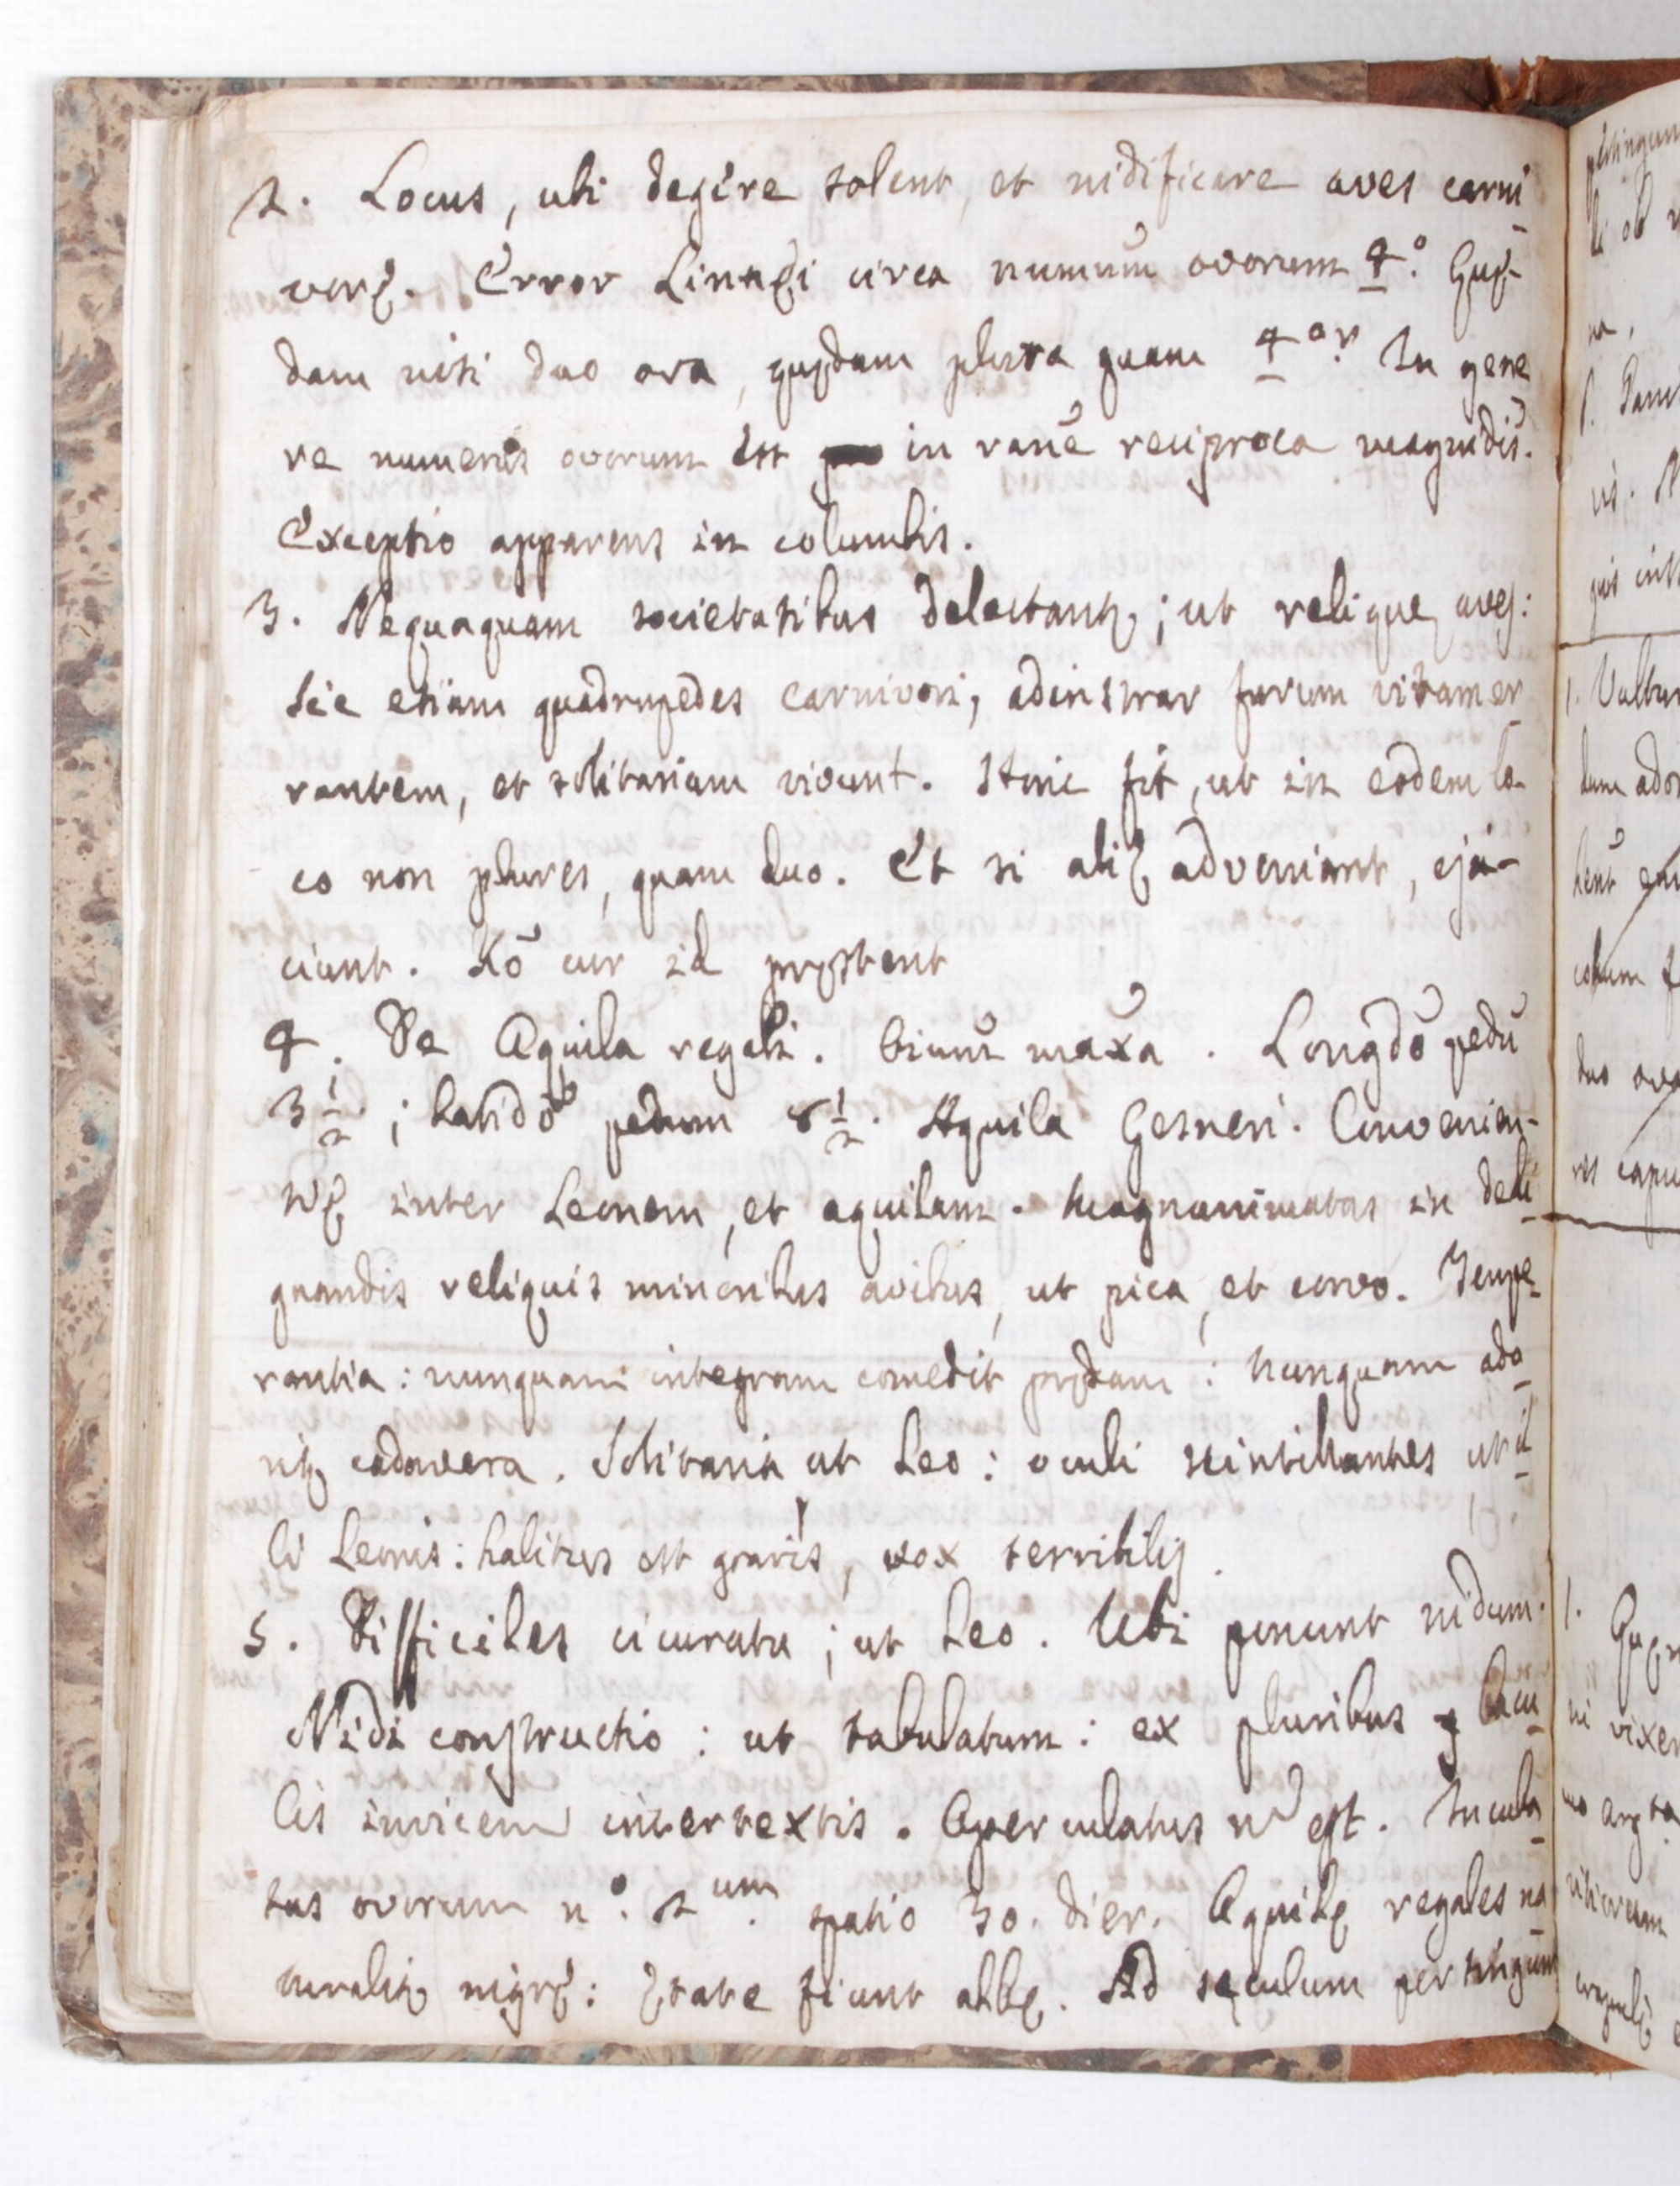 2. Locus, ubi degere solent, et nidificare aves carni
vorę. Error Linnęi circa numum̄ ovorum 4.º Quę-
dam nisi duo ova, quędam plura quam 4.or In gene
re numerus ovorum est in rane reciproca magnidis.
Exceptio apparens in columbis.
3. Nequaquam societatibus delectantꝫ; ut reliquę aves:
sic etiam quadrupedes carnivori, adinstrar furum vitam er
rantem, et solitariam vivunt. Hinc fit, ut in eodem lo-
co non plures, quam duo. Et si alię adveniant, eja-
ciunt. Rō cur id pręstent
4. De Aquila regali. Oium̄ maxā. Longdō pedū
3 1/2; Latidō pedum 8 1/2. Aquila Gesneri. Convenien-
tię inter Leonem, et aquilam. Magnanimatas in dedi
gnandis reliquis minoribus avibus, ut pica, et corvo. Tempe
rantia: nunquam integram comedit prędam: nunquam ado
ritꝫ cadavera. Solitaria ut Leo: oculi scintillantes ut il
li Leonis: halitus est gravis, vox terribilis.
5. Difficiles cicuratu; ut Leo. Ubi ponunt nidum.
Nidi constructio: ut tabulatum: ex pluribus bacu
lis invicem intertextis. Operculatus n̄ est. Incuba
tus ovorum n.º 2um. spatio 30. dier. Aquilę regales na
turalitꝫ nigrę: Ętate fiunt albę. Ad sęculum pertingunt